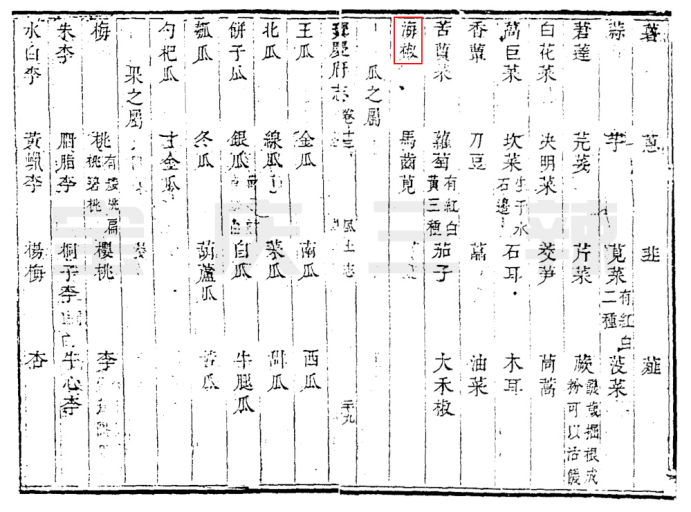 韭 薤
蒜 芋 莧菜 有紅白二種 菠菜
芫荽 芹菜 蕨 掘根成粉可以活饑
白花菜 決明菜 茭笋 茼蒿
萵巨菜 坎菜 生于水石邊 石耳 木耳
香蕈 刀豆 油菜
苦蕒菜 蘿蔔 有紅白黃三種 茄子 大禾椒
海椒 馬齒莧
瓜之屬
寶慶府志 卷十三 風土志
王瓜 金瓜 南瓜 西瓜
北瓜 線瓜 菜瓜 甜瓜
餅子瓜 銀瓜 白瓜 牛腿瓜
瓠瓜 冬瓜 葫蘆瓜 苦瓜
勺杷瓜 金瓜
果之屬
梅 桃 櫻桃 李
朱李 胭脂李 桐子李 牛心李
水白李 黃蠟李 楊梅 杏